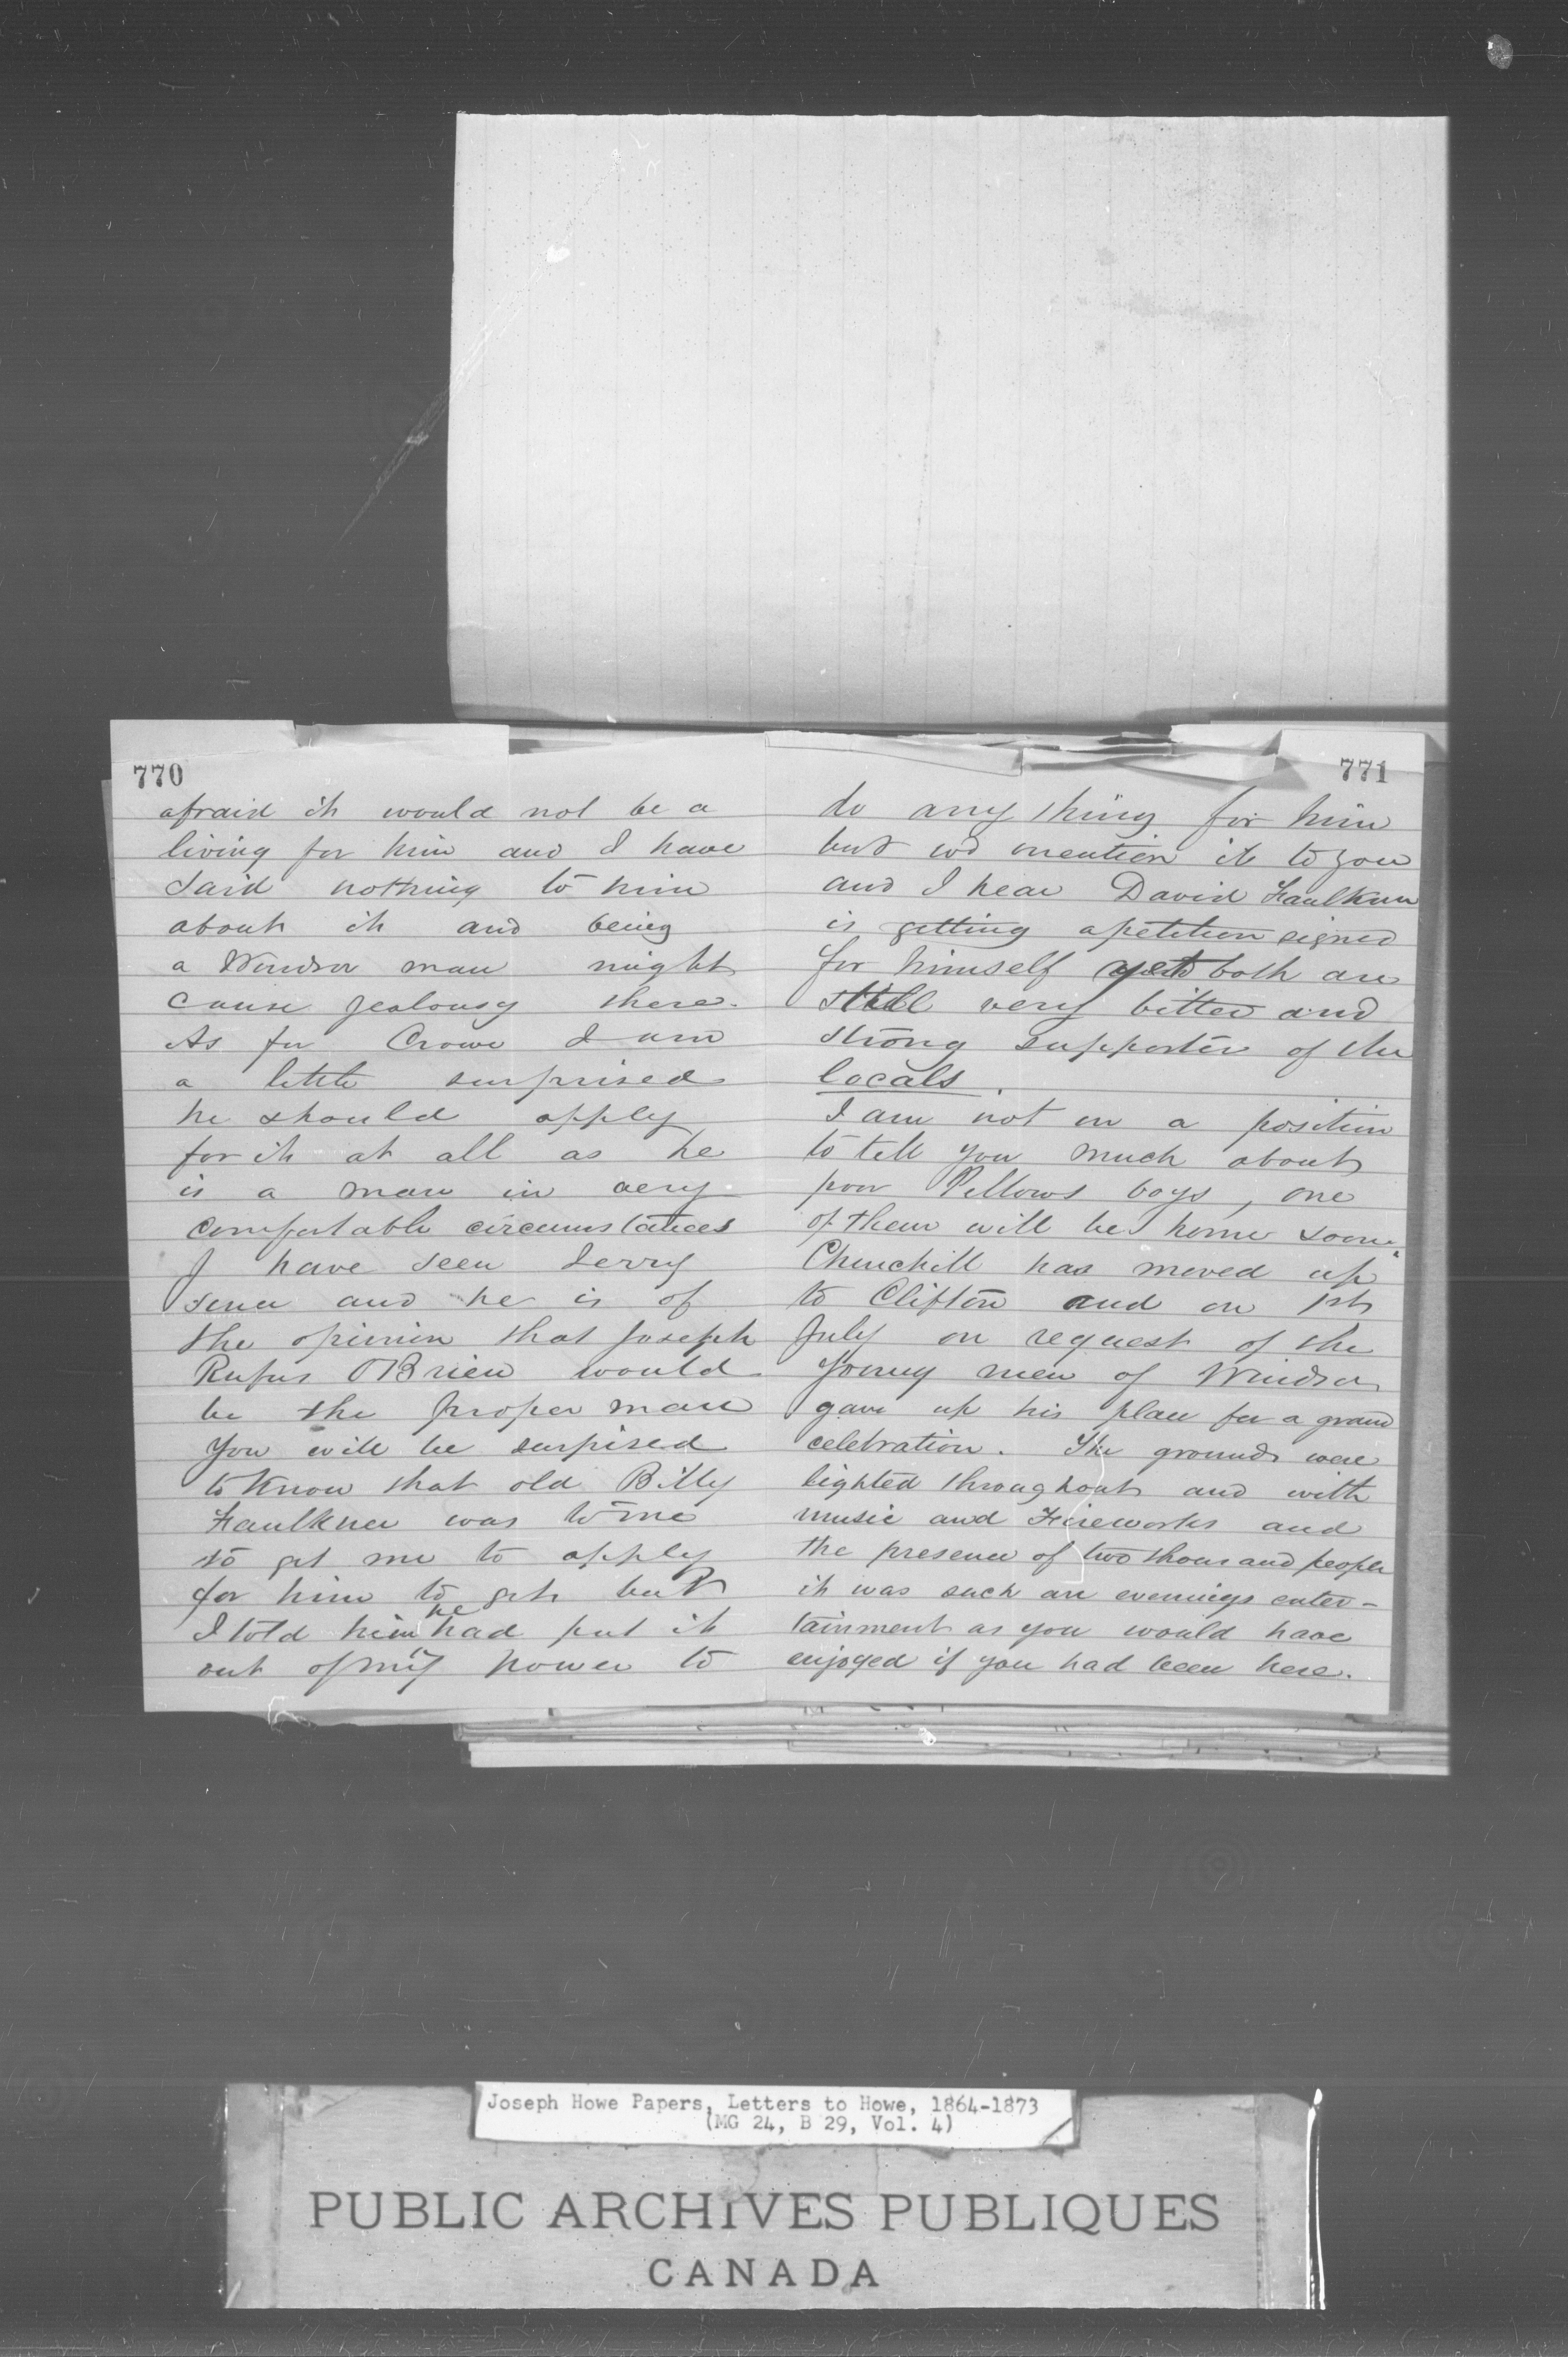 770
afraid it would not be a
living for him and I have
said nothing to him
about it and being
a Windsor man might
cause jealousy there.
As for Crowe I am
a little surprised
he should apply
for it at all as he
is a man in very
comfortable circumstances
I have seen Jerry
since and he is of
the opinion that Joseph
Rufus OBrien would
be the proper man
You will be surpised
to know that old Billy
Faulkner was to me
to get me to apply
for him to get but
I told him he had put it
out of my power to
771
do any thing for him
but wd mention it to you
and I hear David Faulkner
is getting a petition signed
for himself yet both are
still very bitter and
strong supporter of the
locals.
I am not in a position
to tell you much about
poor Pellows boys, one
of them will be home soon.
Churchill has moved up
to Clifton and on 1st
July on request of the
young men of Windsor
gave up his place for a grand
celebration. The grounds were
lighted throughout and with
music and Fireworks and
the presence of two thousand people
it was such an evenings enter-
tainment as you would have
enjoyed if you had been here.
Joseph Howe Papers, Letters to Howe, 1864-1873
(MG 24, B 29, Vol. 4)
PUBLIC ARCHIVES PUBLIQUES
CANADA